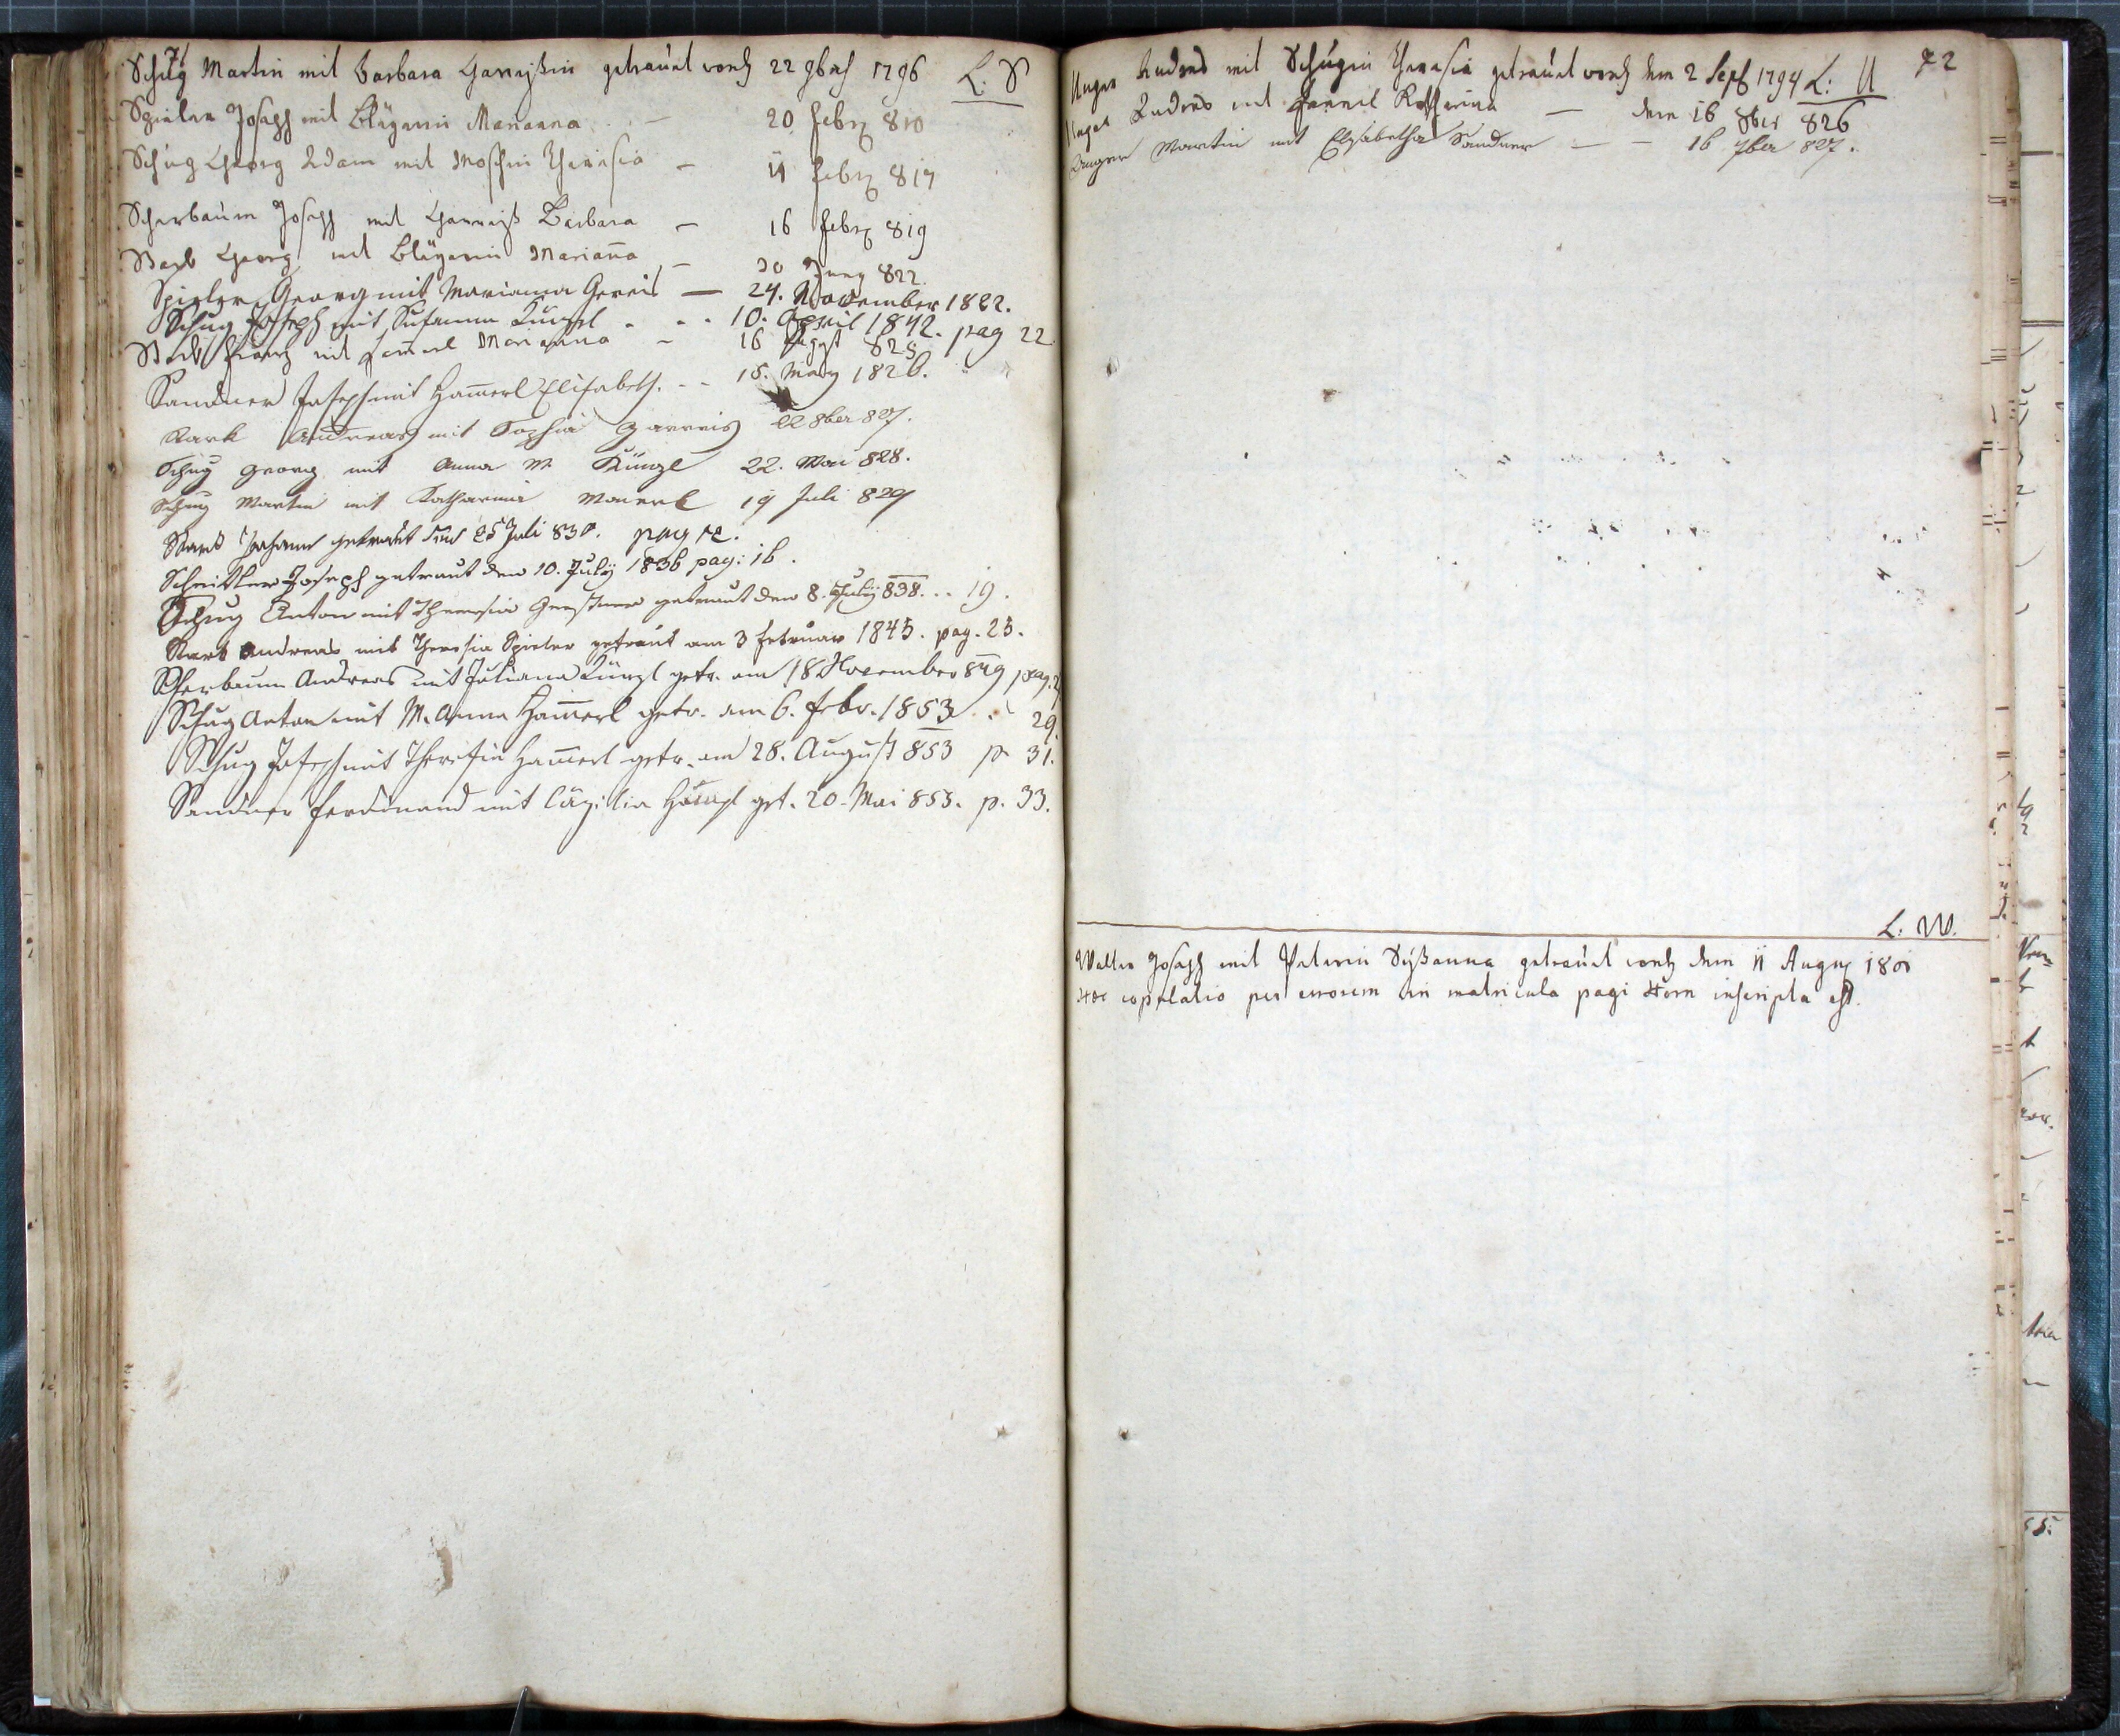 71
Schug Martin mit Barbara Garreißin getraut word 22 9ber 1796 L: S
Spieler Joseph mit Bläyerin Marianna – 20 Febr 810
Schug Georg Adam mit Moschin Theresia – 11 Febr 817
Scherbaum Joseph mit Garreiß Barbara – 16 Febr 819
Georg mit Bläyerin Mariana – 30 Juny 822
Spieler Georg mit Marianna Gereis — 24. November 1822.
Schug Joseph mit Susanna Künzl . . . 10. April 1842. pag 22
Stark Franz mit Ham̄erl Marianna – 16 825
Sandner Joseph mit Ham̄erl Elisabeth. – – 15. März 1826.
Stark Andreas mit Sophia Garreis 22 8ber 827.
Schug Georg mit Anna M. Künzl 22. Mai 828.
Schug Martin mit Katharina 19 Juli 829
Stark Johann getraut den 25 Juli 830. pag 12.
Joseph getraut den 10. July 1836 pag: 16.
Schug Anton mit Theresia Gerstner getraut den 8. July 838. . . 19.
Stark Andreas mit Theresia Spieler getraut am 3 Februar 1845. pag. 25.
Scherbaum Andreas mit Juliana Künzl getr. am 18 November 849 pag. 2
Schug Anton mit M. Anna Ham̄erl getr. am 6. Febr. 1853 . " 29.
Schug Joseph mit Theresia Ham̄erl getr. am 28. August 853 p 31.
Sandner Ferdinand mit Cäzilia get. 20. Mai 853. p. 33.
Unger Andres mit Schugin Theresia getraut word dem 2 Sept 1794 L: U 72
Unger Andres mit Hammerl Katharina — dem 16 8ber 826
Unger Martin mit Elisabetha Sandner — – 16 7ber 827.
L: W.
Walter Joseph mit Peterin Sußanna getraut word dem 11 Augus 1801
Hæc copulatio per errorem in matricula pagi Horn inscripta est.